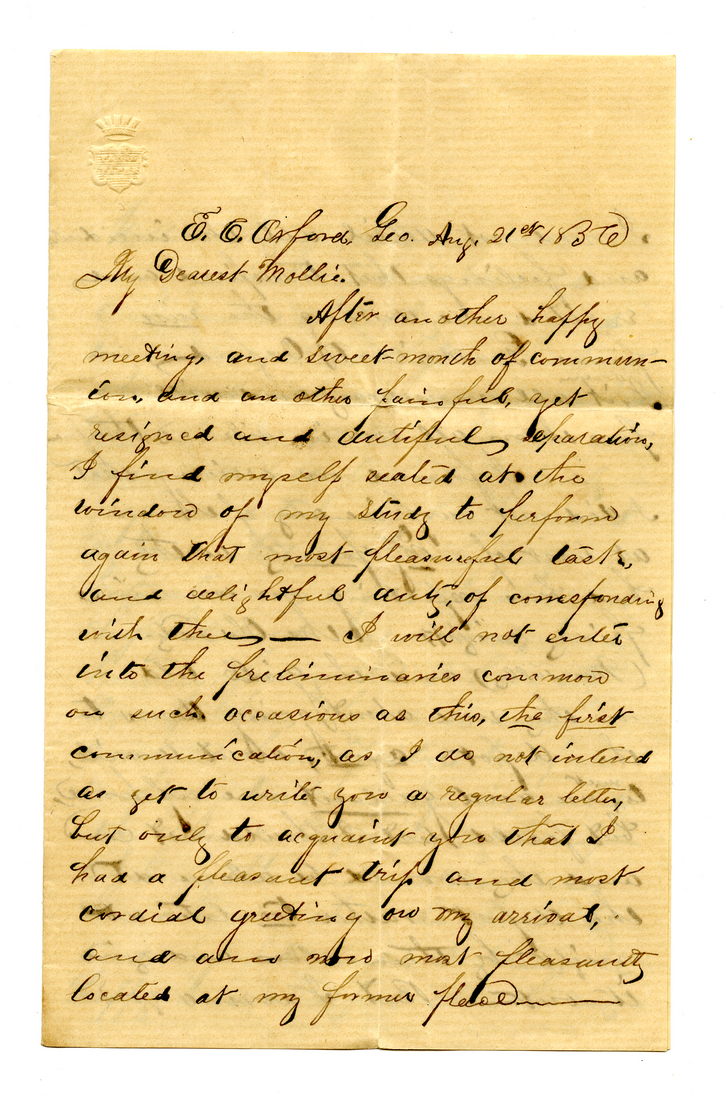 E. C. Oxford, Geo. Aug. 21st 1856
My Dearest Mollie.
After another happy
meeting, and sweet month of commun-
ion, and an other painful, yet
resigned and dutiful separation,
I find myself seated at the
window of my study to perform
again that most pleasureful task,
and delightful duty, of corresponding
with thee — I will not enter
into the preliminaries common
on such occasions as this, the first
communication, as I do not intend
as yet to write you a regular letter,
but only to acquaint you that I
had a pleasant trip and most
cordial greeting on my arrival,
and am now most pleasantly
located at my former place —